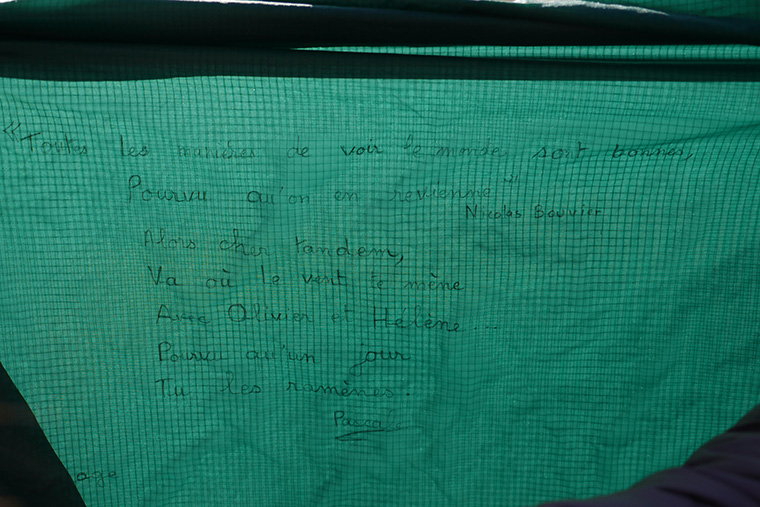 « Toutes les manières de voir le monde sont bonnes,
Pourvu qu'on en revienne »
Nicolas Bouvier
Alors cher tandem,
Va où le vent te mène
Avec Olivier et Hélène...
Pourvu qu'un jour
Tu les ramènes.
age